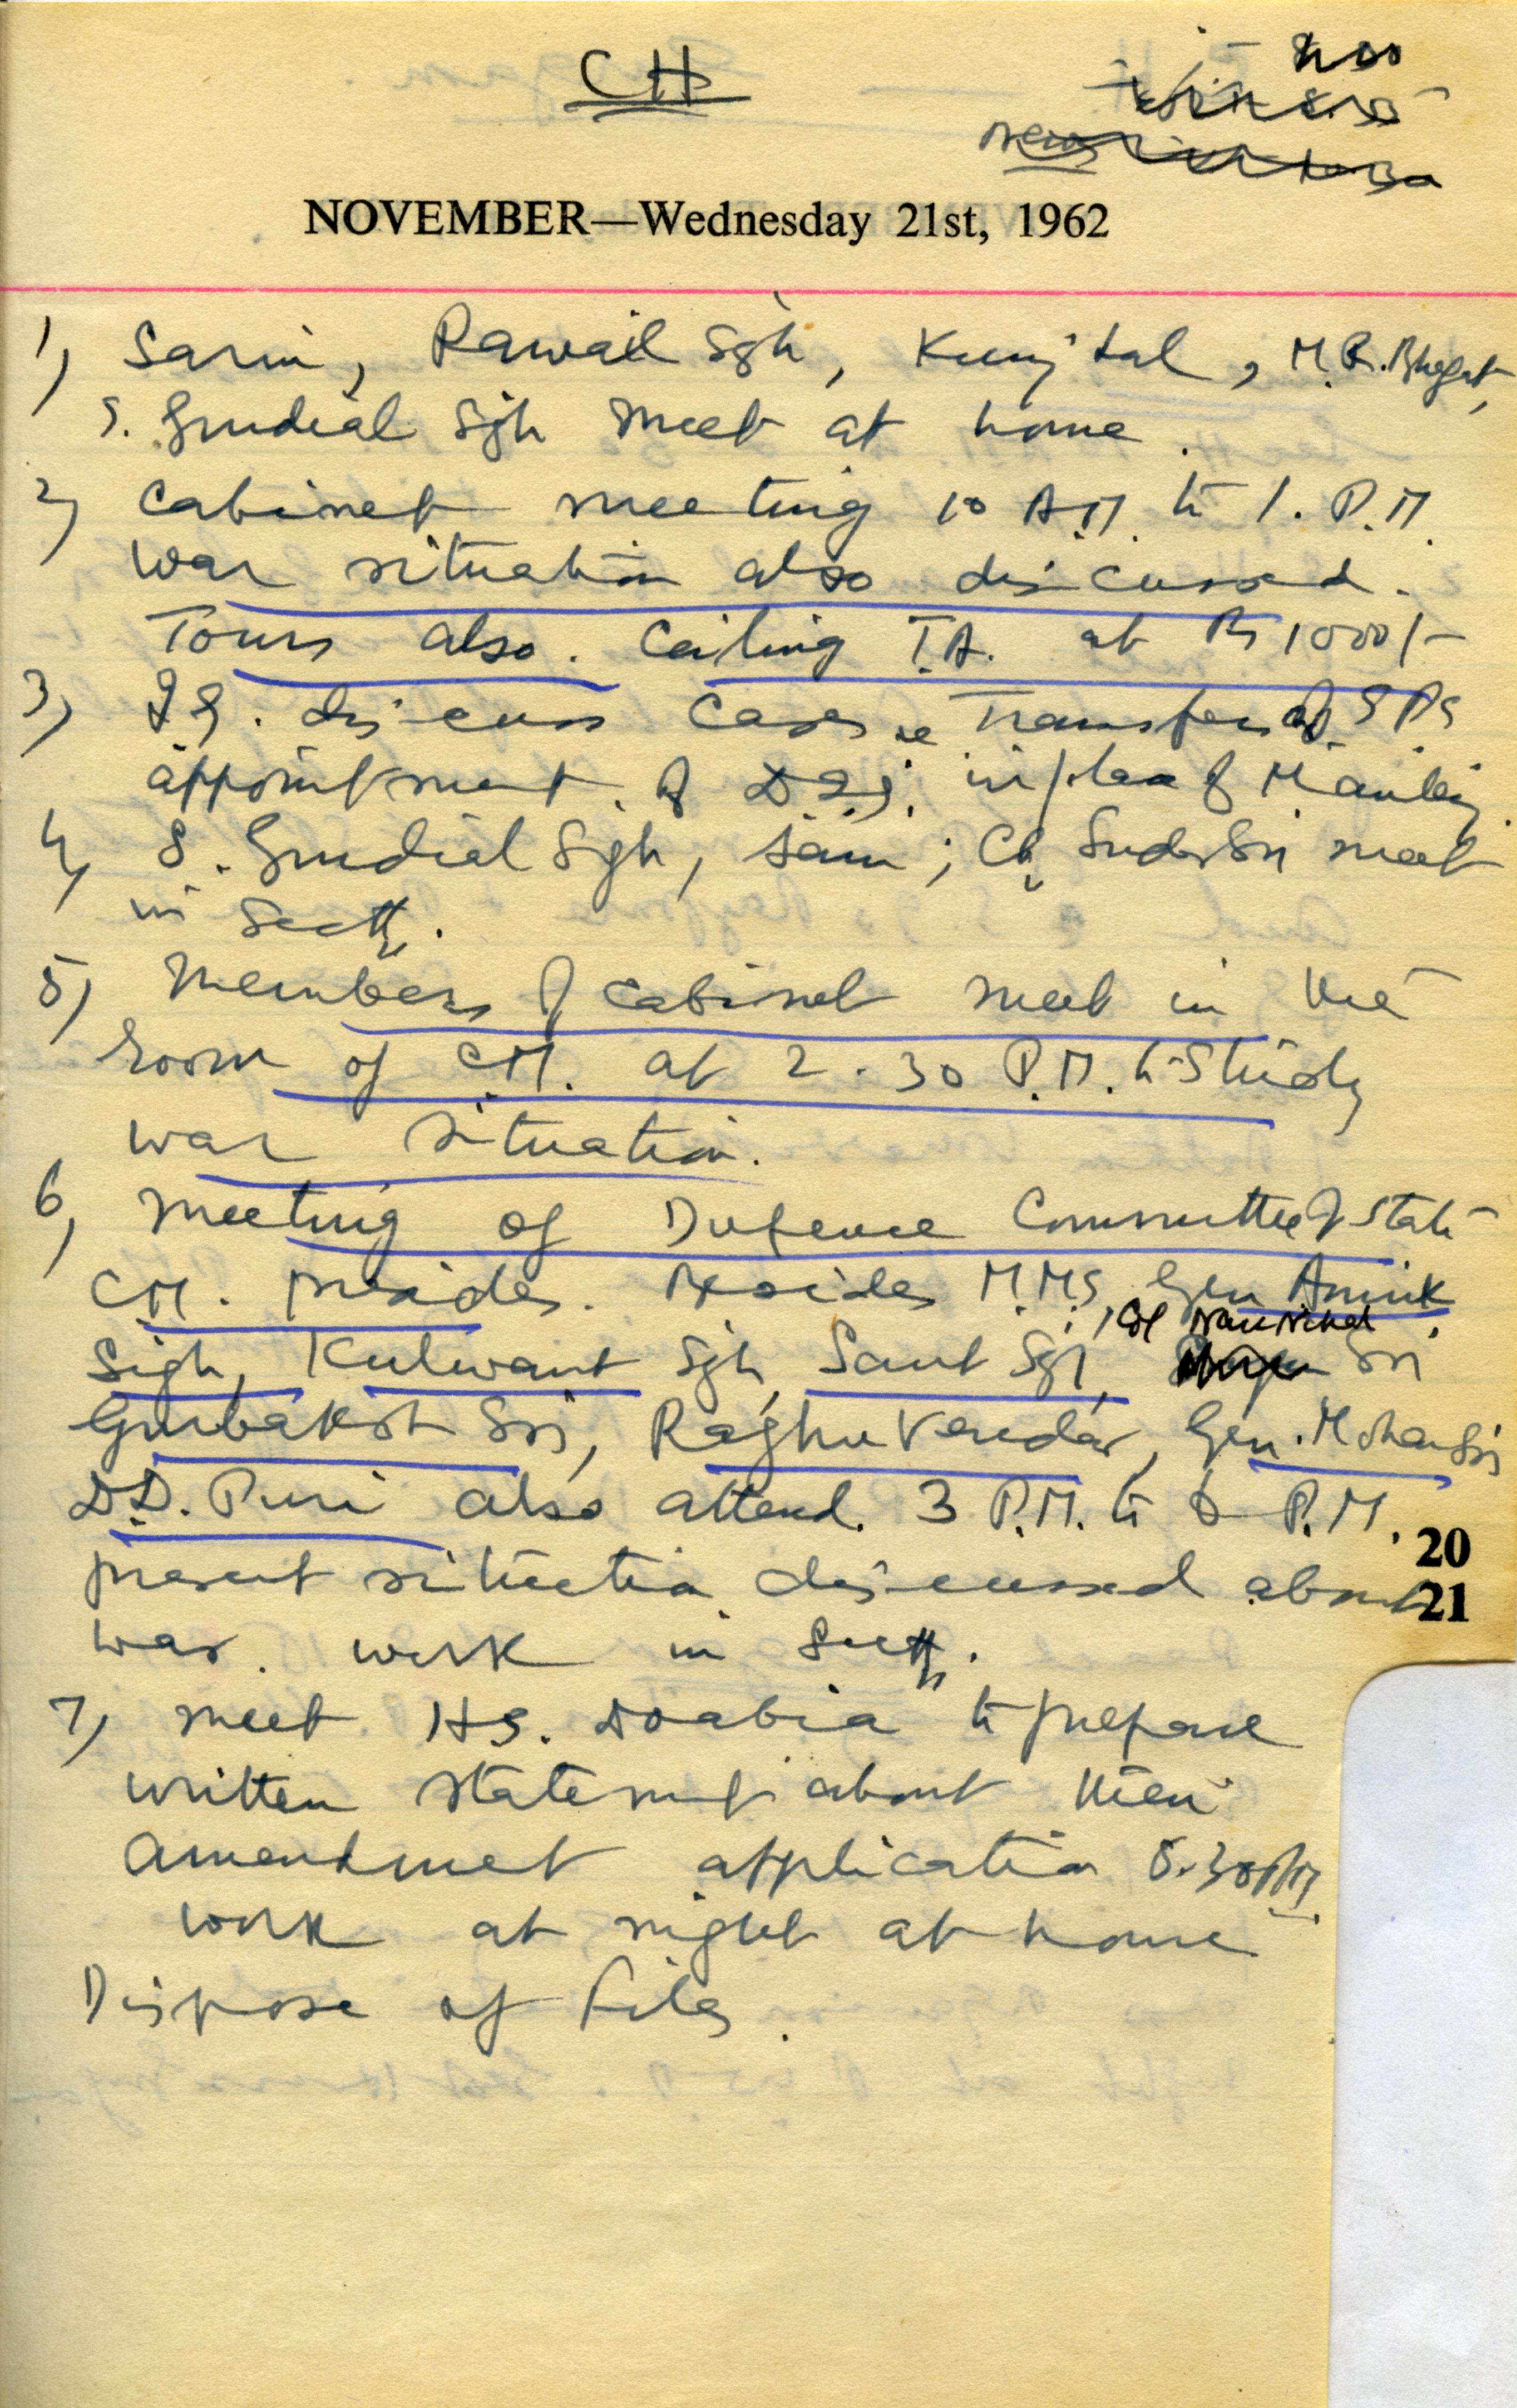 CH
NOVEMBER—Wednesday 21st, 1962
1) Sarin, Rawail Sgh, Kunj Lal, M.R. Bhagat,
S. Gurdial Sgh meet at home.
2) Cabinet meeting 10 A.M. to 1. P.M.
War situation also discussed.
Tours also. Ceiling T.A. at Rs 1000/-
3) I.G. discuss cases re Transfers of SPs
appointment of D.I.G. in place of
4) S. Gurdial Sgh, Sarin; Ch meet
in Sectt.
5) Members of cabinet meet in the
room of C.M. at 2.30 P.M. to study
war situation.
6) Meeting of Defence Committee of State
C.M. presides. Besides M.Ms, Gen Amrik
Sigh, Kulwant Sgh, Sant Sgh, Col Naunihal
Gurbaksh Sgh, Raghuvendar, Gen. Mohan Sgh
D.D. Puri also attend. 3 P.M. to P.M.
20
present situation discussed about
21
war. work in Sectt.
7) meet H.S. Doabia to prepare
written statement about their
amendment application 8.30 PM
work at night at home
Dispose of files.